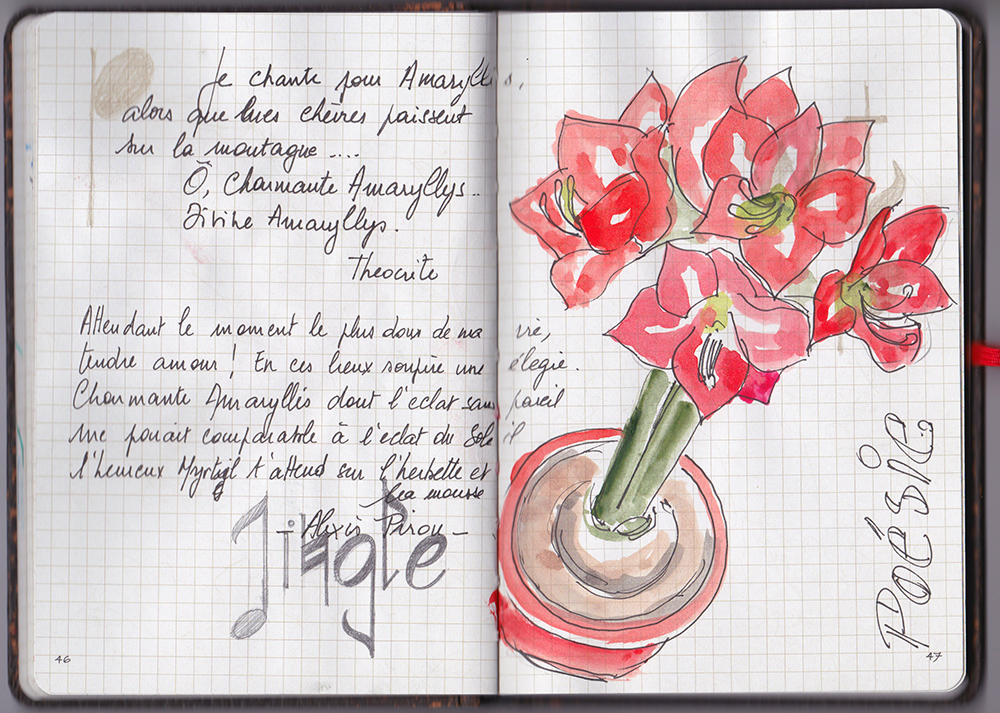 Je chante pour Amaryllis,
alors que mes chèvres paissent
sur la montagne ....
Ô, Charmante Amaryllys..
Divine Amaryllys.
Théocrite
Attendant le moment le plus doux de ma vie,
tendre amour ! En ces lieux soupire une élégie.
Charmante Amaryllis dont l'eclat sans pareil
me parait comparable à l'éclat du Soleil
l'heureux Myrtil t'attend sur l'herbette et
la mousse
- Alexis Piron -
Jingle
Poésie
46
47